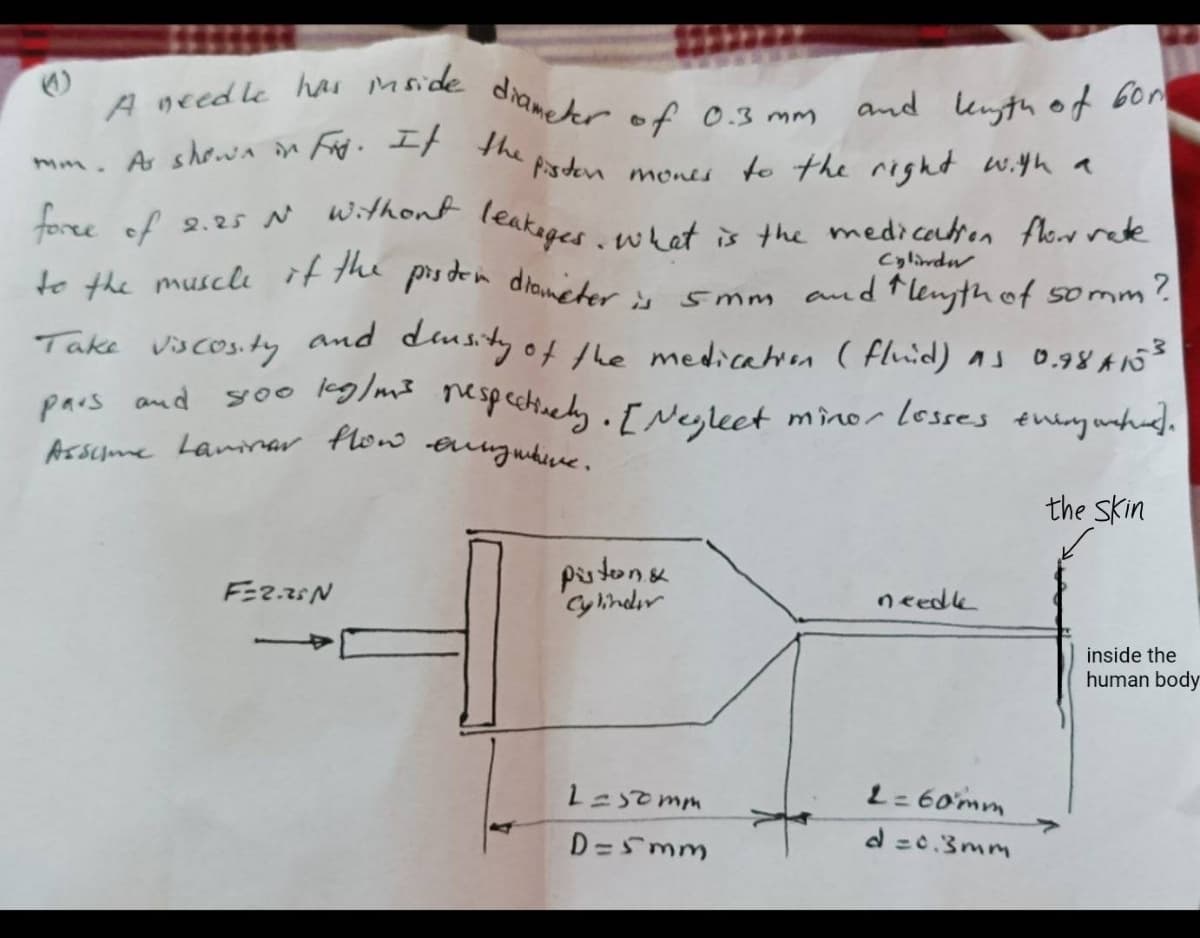 (1)
A needle has inside diameter of 0.3 mm and length of 60
mm. As shown in Fig. If the piston moves to the right with a
force of 2.25 N without leakages. what is the medication flow rate
Cylinder
to the muscle if the piston diameter is 5 mm and ↑ length of 50 mm?
Take viscosity and density of the medication (fluid) as 0.98 * 10⁻³
pa.s and 800 kg/m³ respectively. [Neglect minor losses everywhere].
Assume Laminar flow everywhere.
the skin
F=2.25N
piston &
cylinder
needle
inside the
human body
L=50mm
L=60mm
D=5mm
d=0.3mm